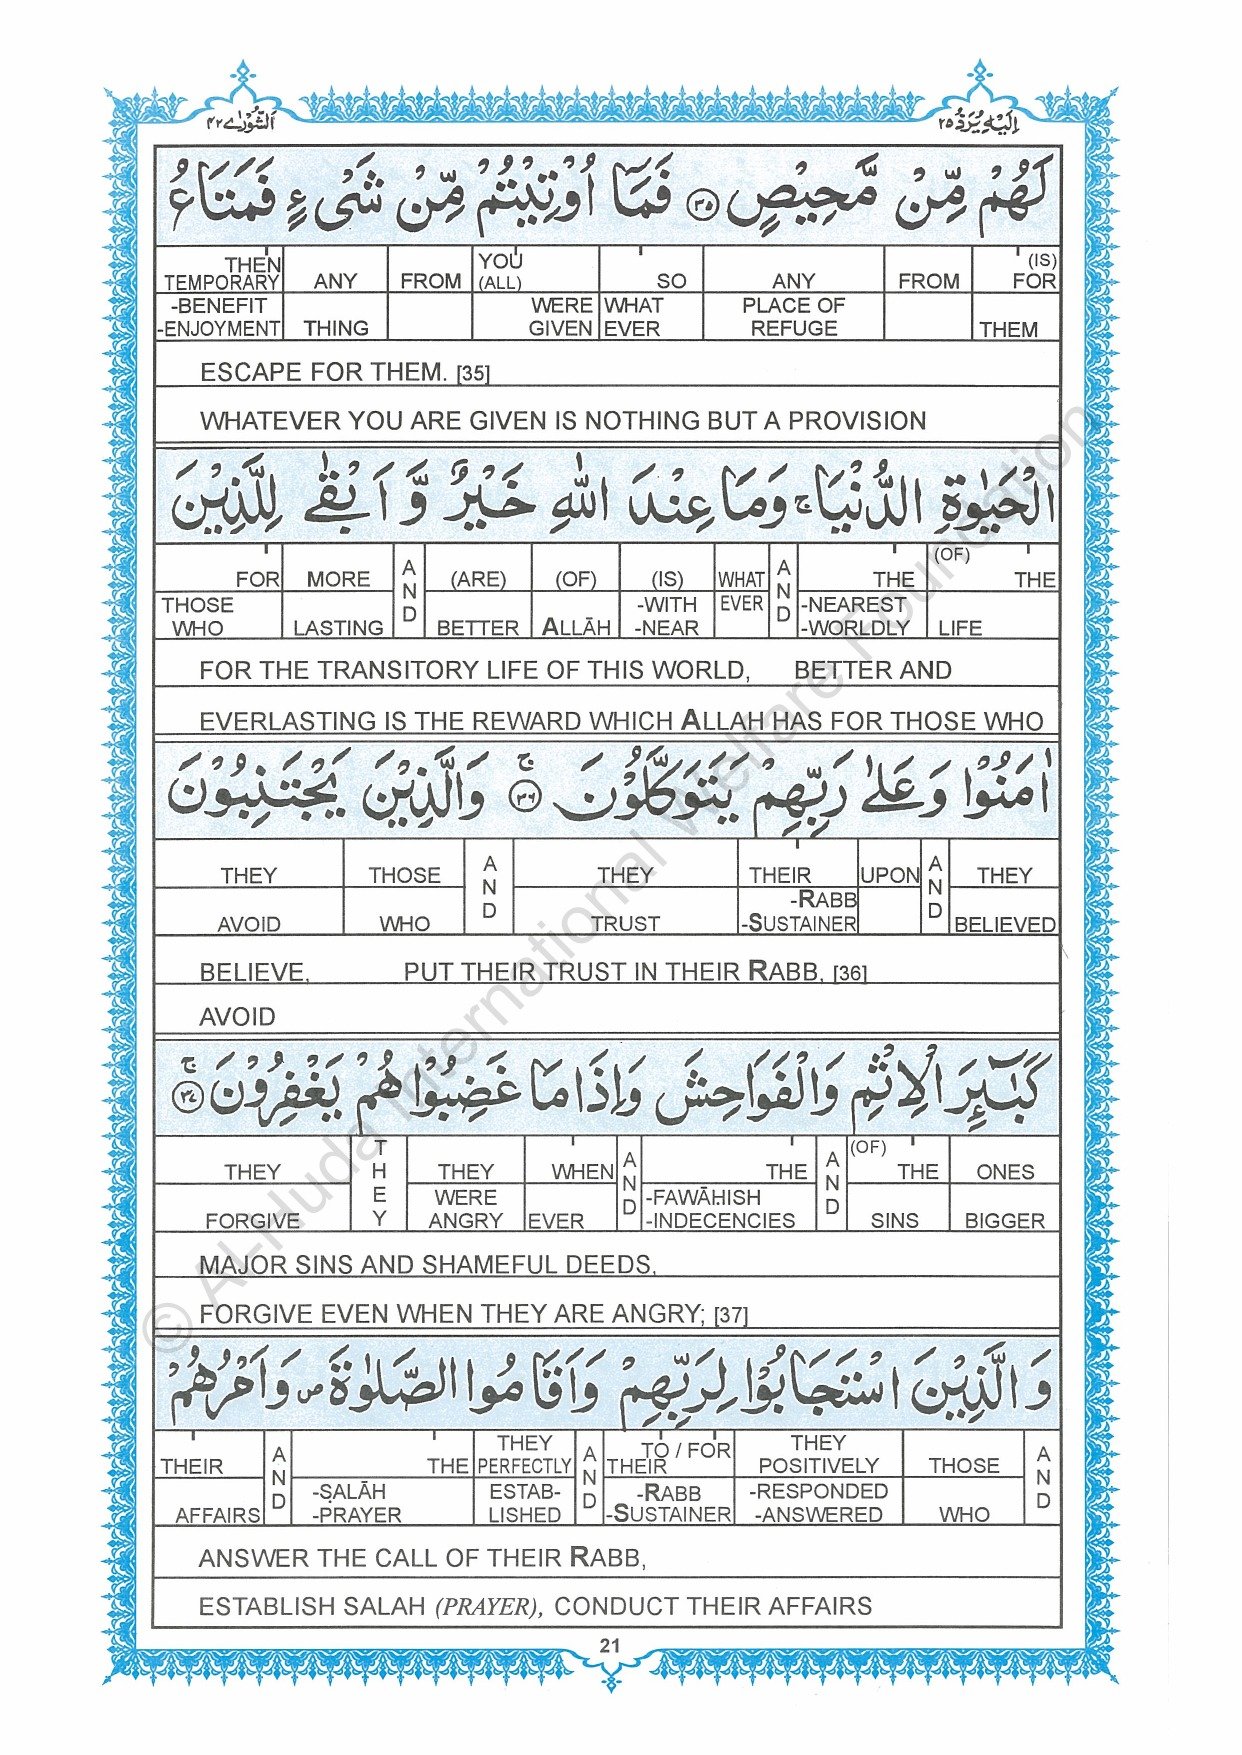 اَلشُّوْرٰے ۴۲
اِلَيْهِ يُرَدُّ ۲۵
لَهُمْ مِّنْ مَّحِيْصٍ ۝۳۵ فَمَآ اُوْتِيْتُمْ مِّنْ شَىْءٍ فَمَتَاعُ
(IS) FOR THEM
FROM
ANY PLACE OF REFUGE
SO WHAT EVER
YOU (ALL) WERE GIVEN
FROM
ANY THING
THEN TEMPORARY -BENEFIT -ENJOYMENT
ESCAPE FOR THEM. [35]
WHATEVER YOU ARE GIVEN IS NOTHING BUT A PROVISION
الْحَيٰوةِ الدُّنْيَا ۚ وَمَا عِنْدَ اللّٰهِ خَيْرٌ وَّ اَبْقٰى لِلَّذِيْنَ
(OF) THE LIFE
THE -NEAREST -WORLDLY
AND
WHAT EVER
(IS) -WITH -NEAR
(OF) ALLĀH
(ARE) BETTER
AND
MORE LASTING
FOR THOSE WHO
FOR THE TRANSITORY LIFE OF THIS WORLD, BETTER AND
EVERLASTING IS THE REWARD WHICH ALLAH HAS FOR THOSE WHO
اٰمَنُوْا وَعَلٰى رَبِّهِمْ يَتَوَكَّلُوْنَ ۝۳۶ ۚ وَالَّذِيْنَ يَجْتَنِبُوْنَ
THEY BELIEVED
AND
UPON
THEIR -RABB -SUSTAINER
THEY TRUST
AND
THOSE WHO
THEY AVOID
BELIEVE, PUT THEIR TRUST IN THEIR RABB, [36]
AVOID
كَبٰٓئِرَ الْاِثْمِ وَالْفَوَاحِشَ وَاِذَا مَا غَضِبُوْا هُمْ يَغْفِرُوْنَ ۝۳۷ ۚ
ONES BIGGER
(OF) THE SINS
AND
THE -FAWĀḤISH -INDECENCIES
AND
WHEN EVER
THEY WERE ANGRY
THEY
THEY FORGIVE
MAJOR SINS AND SHAMEFUL DEEDS,
FORGIVE EVEN WHEN THEY ARE ANGRY; [37]
وَ الَّذِيْنَ اسْتَجَابُوْا لِرَبِّهِمْ وَ اَقَامُوا الصَّلٰوةَ ۖ وَ اَمْرُهُمْ
AND
THOSE WHO
THEY POSITIVELY -RESPONDED -ANSWERED
TO / FOR THEIR -RABB -SUSTAINER
AND
THEY PERFECTLY ESTAB- LISHED
THE -ṢALĀH -PRAYER
AND
THEIR AFFAIRS
ANSWER THE CALL OF THEIR RABB,
ESTABLISH SALAH (PRAYER), CONDUCT THEIR AFFAIRS
21
© Al-Huda International Welfare Foundation